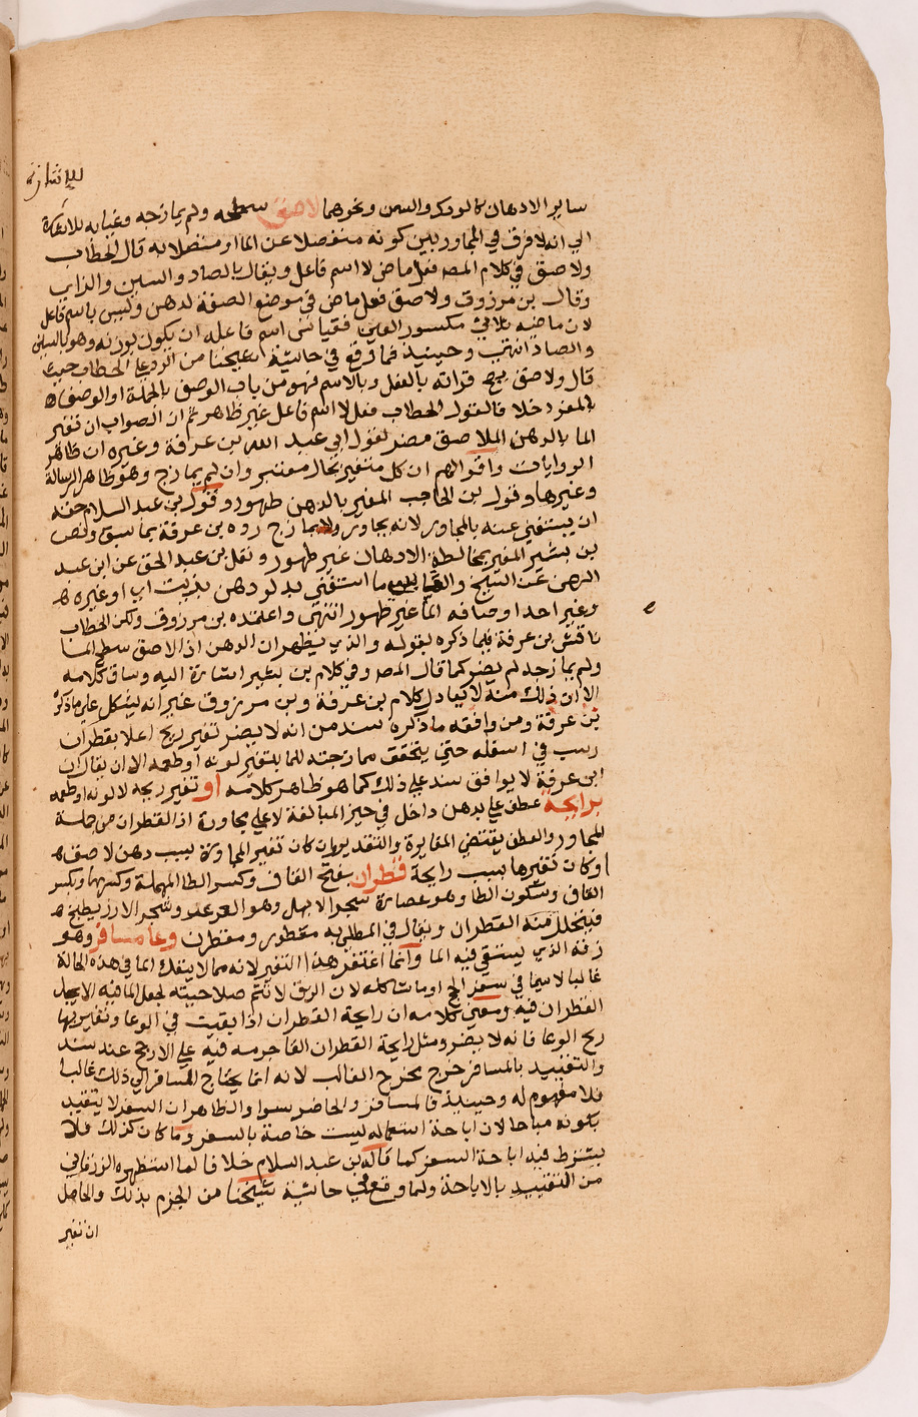 للاشارة
ساير الادهان كالودك والسمن ونحوهما لاصق سطحه ولم يمازجه وغيابه للاشارة
الي انه لا فرق في المجاور بين كونه منفصلا عن الما او متصلا به قال الحطاب
ولاصق في كلام المصه فعل ماض لا اسم فاعل ويقال بالصاد والسين والزاي
وقال بن مرزوق ولاصق فعل ماض في موضع الصفة لدهن وليس باسم فاعل
لان ماضيه ثلاثي مكسور العين فقياس اسم فاعله ان يكون بوزنه وهو بالسين
والصاد انتهي وحينيذ فما وقع في حاشية شيخنا من الرد علي الحطاب حيث
قال ولاصق يصح قراته بالفعل وبالاسم فهو من باب الوصف بالجملة او الوصف
بالمفرد خلافا لقول الحطاب فعل لا اسم فاعل غير ظاهر ثم ان الصواب ان تغير
الما بالدهن الملاصق مضر لقول ابي عبد الله بن عرفة وغيره ان ظاهر
الروايات واقوالهم ان كل متغير بحال معتبر وان لم يمازج وهو ظاهر الرسالة
وغيرها وقول بن الحاجب المغير بالدهن طهور وقول بن عبد السلام حقه
ان يستغني عنه بالمجاور لانه يجاور ولا يمازج رده بن عرفة بما سبق ونص
بن بشير المغير بمخالطة الادهان غير طهور ونقل بن عبد الحق عن ابن عبد
الرحمن عن الشيخ والقابسي ما استقي بدلو دهن بزيت اي او غيره
وغير احد اوصافه الما غير طهور انتهي واعتمده بن مرزوق ولكن الحطاب
ناقش بن عرفة فيما ذكره لقوله والذي يظهر ان الدهن اذا لاصق سطح الما
ولم يمازجه لم يضر كما قال المصه وفي كلام بن بشير اشارة اليه وساق كلامه
الا ان ذلك منه لا يعادل كلام بن عرفة وبن مرزوق غير انه يشكل علي ما ذكره
بن عرفة ومن وافقه ما ذكره سند من انه لا يضر تغير ريح اعلا بقطران
رسب في اسفله حتي يتحقق ممازجته للما بتغير لونه او طعمه الا ان يقال ان
ابن عرفة لا يوافق سند علي ذلك كما هو ظاهر كلامه او تغير ريحه لا لونه او طعمه
برايحة عطف علي بدهن داخل في حيز المبالغة لا علي مجاورة اذ القطران من جملة
المجاور والعطف يقتضي المغايرة والتقدير وان كان تغير المجاورة بسبب دهن لاصق
او كان تغيرها بسبب رايحة قطران بفتح القاف وكسر الطا المهملة وكسرها وبكسر
القاف وسكون الطا وهو عصارة شجر الابهل وهو العرعر وشجر الارز يطبخ
فيتحلل منه القطران ويقال في المطلي به مقطور ومقطرن وعا مسافر وهو
زقه الذي يستقي فيه الما وانما اغتفر هذا التغير لانه مما لا ينفك الما في هذه الحالة
غالبا لا سيما في سفر الحج او ما شاكله لان الزق لا تتم صلاحيته لجعل الما فيه الا بجعل
القطران فيه ومعني كلامه ان رايحة القطران اذا بقيت في الوعا وتغير بها
ريح الوعا فانه لا يضر ومثل رايحة القطران القا جرمه فيه علي الارجح عند سند
والتقييد بالمسافر خرج مخرج الغالب لانه انما يحتاج المسافر الي ذلك غالبا
فلا مفهوم له وحينيذ فالمسافر والحاضر سوا والظاهر ان السفر لا يتقيد
بكونه مباحا لان اباحة استعماله ليست خاصة بالسفر وما كان كذلك فلا
يشترط فيه اباحة السفر كما قاله بن عبد السلام خلافا لما استظهره الزرقاني
من التقييد بالاباحة ولما وقع في حاشية شيخنا من الجزم بذلك والحاصل
ان تغير